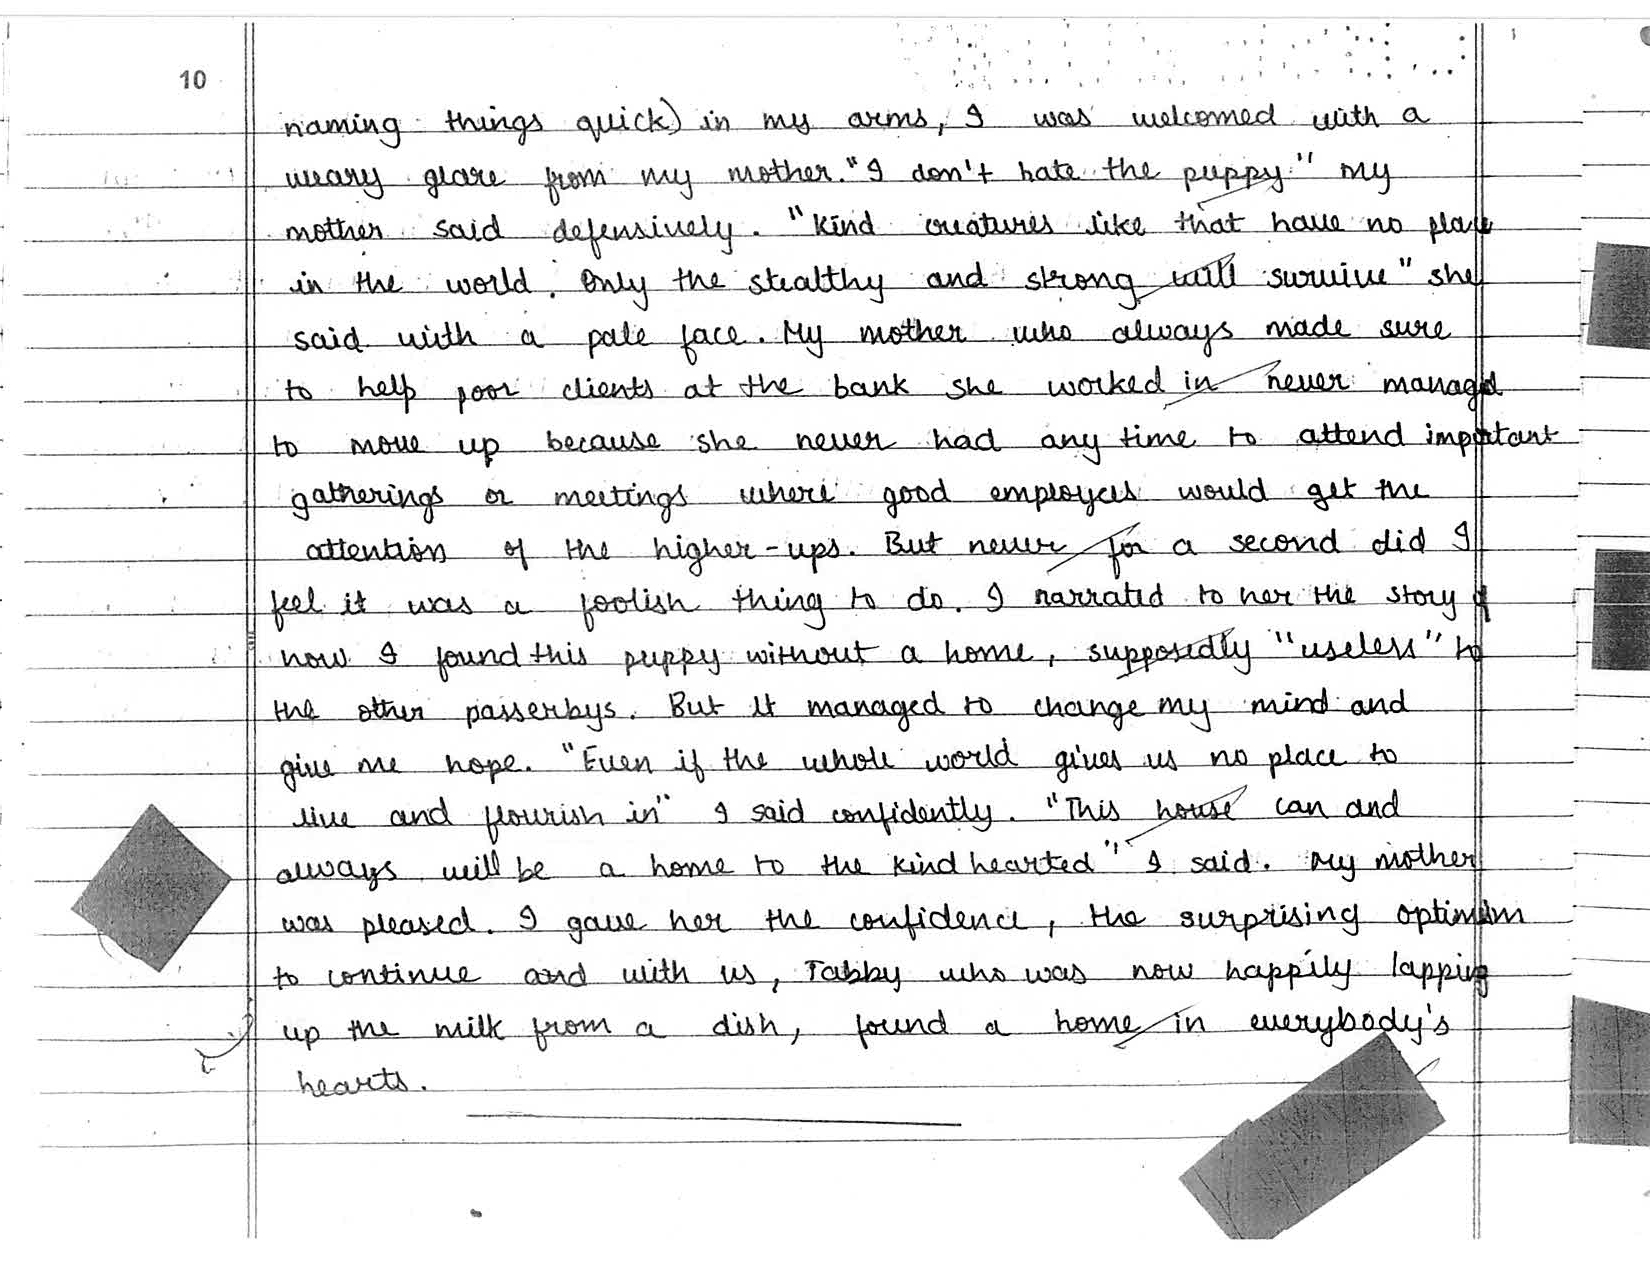 10
naming things quick) in my arms, I was welcomed with a
weary glare from my mother. "I don't hate the puppy" my
mother said defensively. "Kind creatures like that have no place
in the world. Only the stealthy and strong will survive" she
said with a pale face. My mother who always made sure
to help poor clients at the bank she worked in never managed
to move up because she never had any time to attend important
gatherings or meetings where good employees would get the
attention of the higher-ups. But never for a second did I
feel it was a foolish thing to do. I narrated to her the story of
how I found this puppy without a home, supposedly "useless" to
the other passerbys. But it managed to change my mind and
give me hope. "Even if the whole world gives us no place to
live and flourish in" I said confidently. "This house can and
always will be a home to the kind hearted" I said. My mother
was pleased. I gave her the confidence, the surprising optimism
to continue and with us, Tabby who was now happily lapping
up the milk from a dish, found a home in everybody's
hearts.